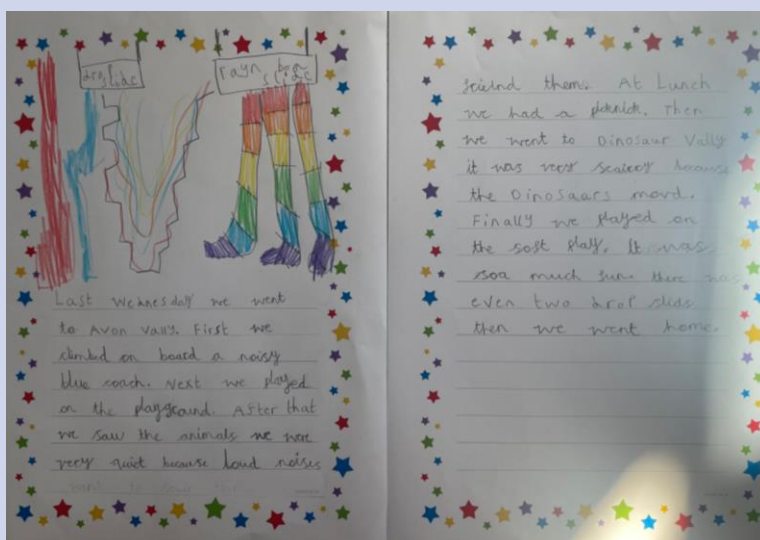 drop
slide
rayn bow
slide
Last Wednesday we went
to Avon Vally. First we
climbed on board a noisy
blue coach. Next we played
on the playground. After that
we saw the animals we were
very quiet because loud noises
sciend them. At Lunch
we had a picknick. Then
we went to Dinosaur Vally
it was very scairey because
the Dinosaars movd.
Finally we played on
the soft play. It was
soa much fun. there was
even two drop slids
then we went home.